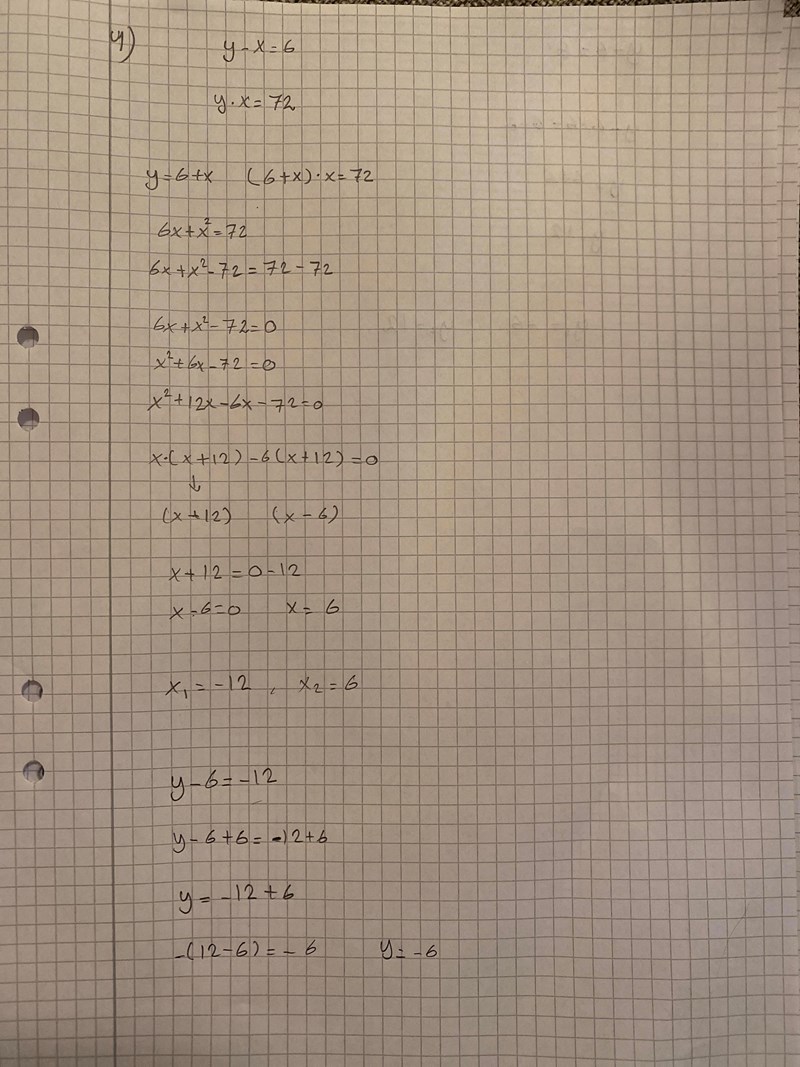 4)
y-x=6
y·x=72
y=6+x (6+x)·x=72
6x+x²=72
6x+x²-72=72-72
6x+x²-72=0
x²+6x-72=0
x²+12x-6x-72=0
x·(x+12)-6(x+12)=0
↓
(x+12) (x-6)
x+12=0-12
x-6=0 x=6
x₁=-12, x₂=6
y-6=-12
y-6+6=-12+6
y=-12+6
-(12-6)=-6 y=-6